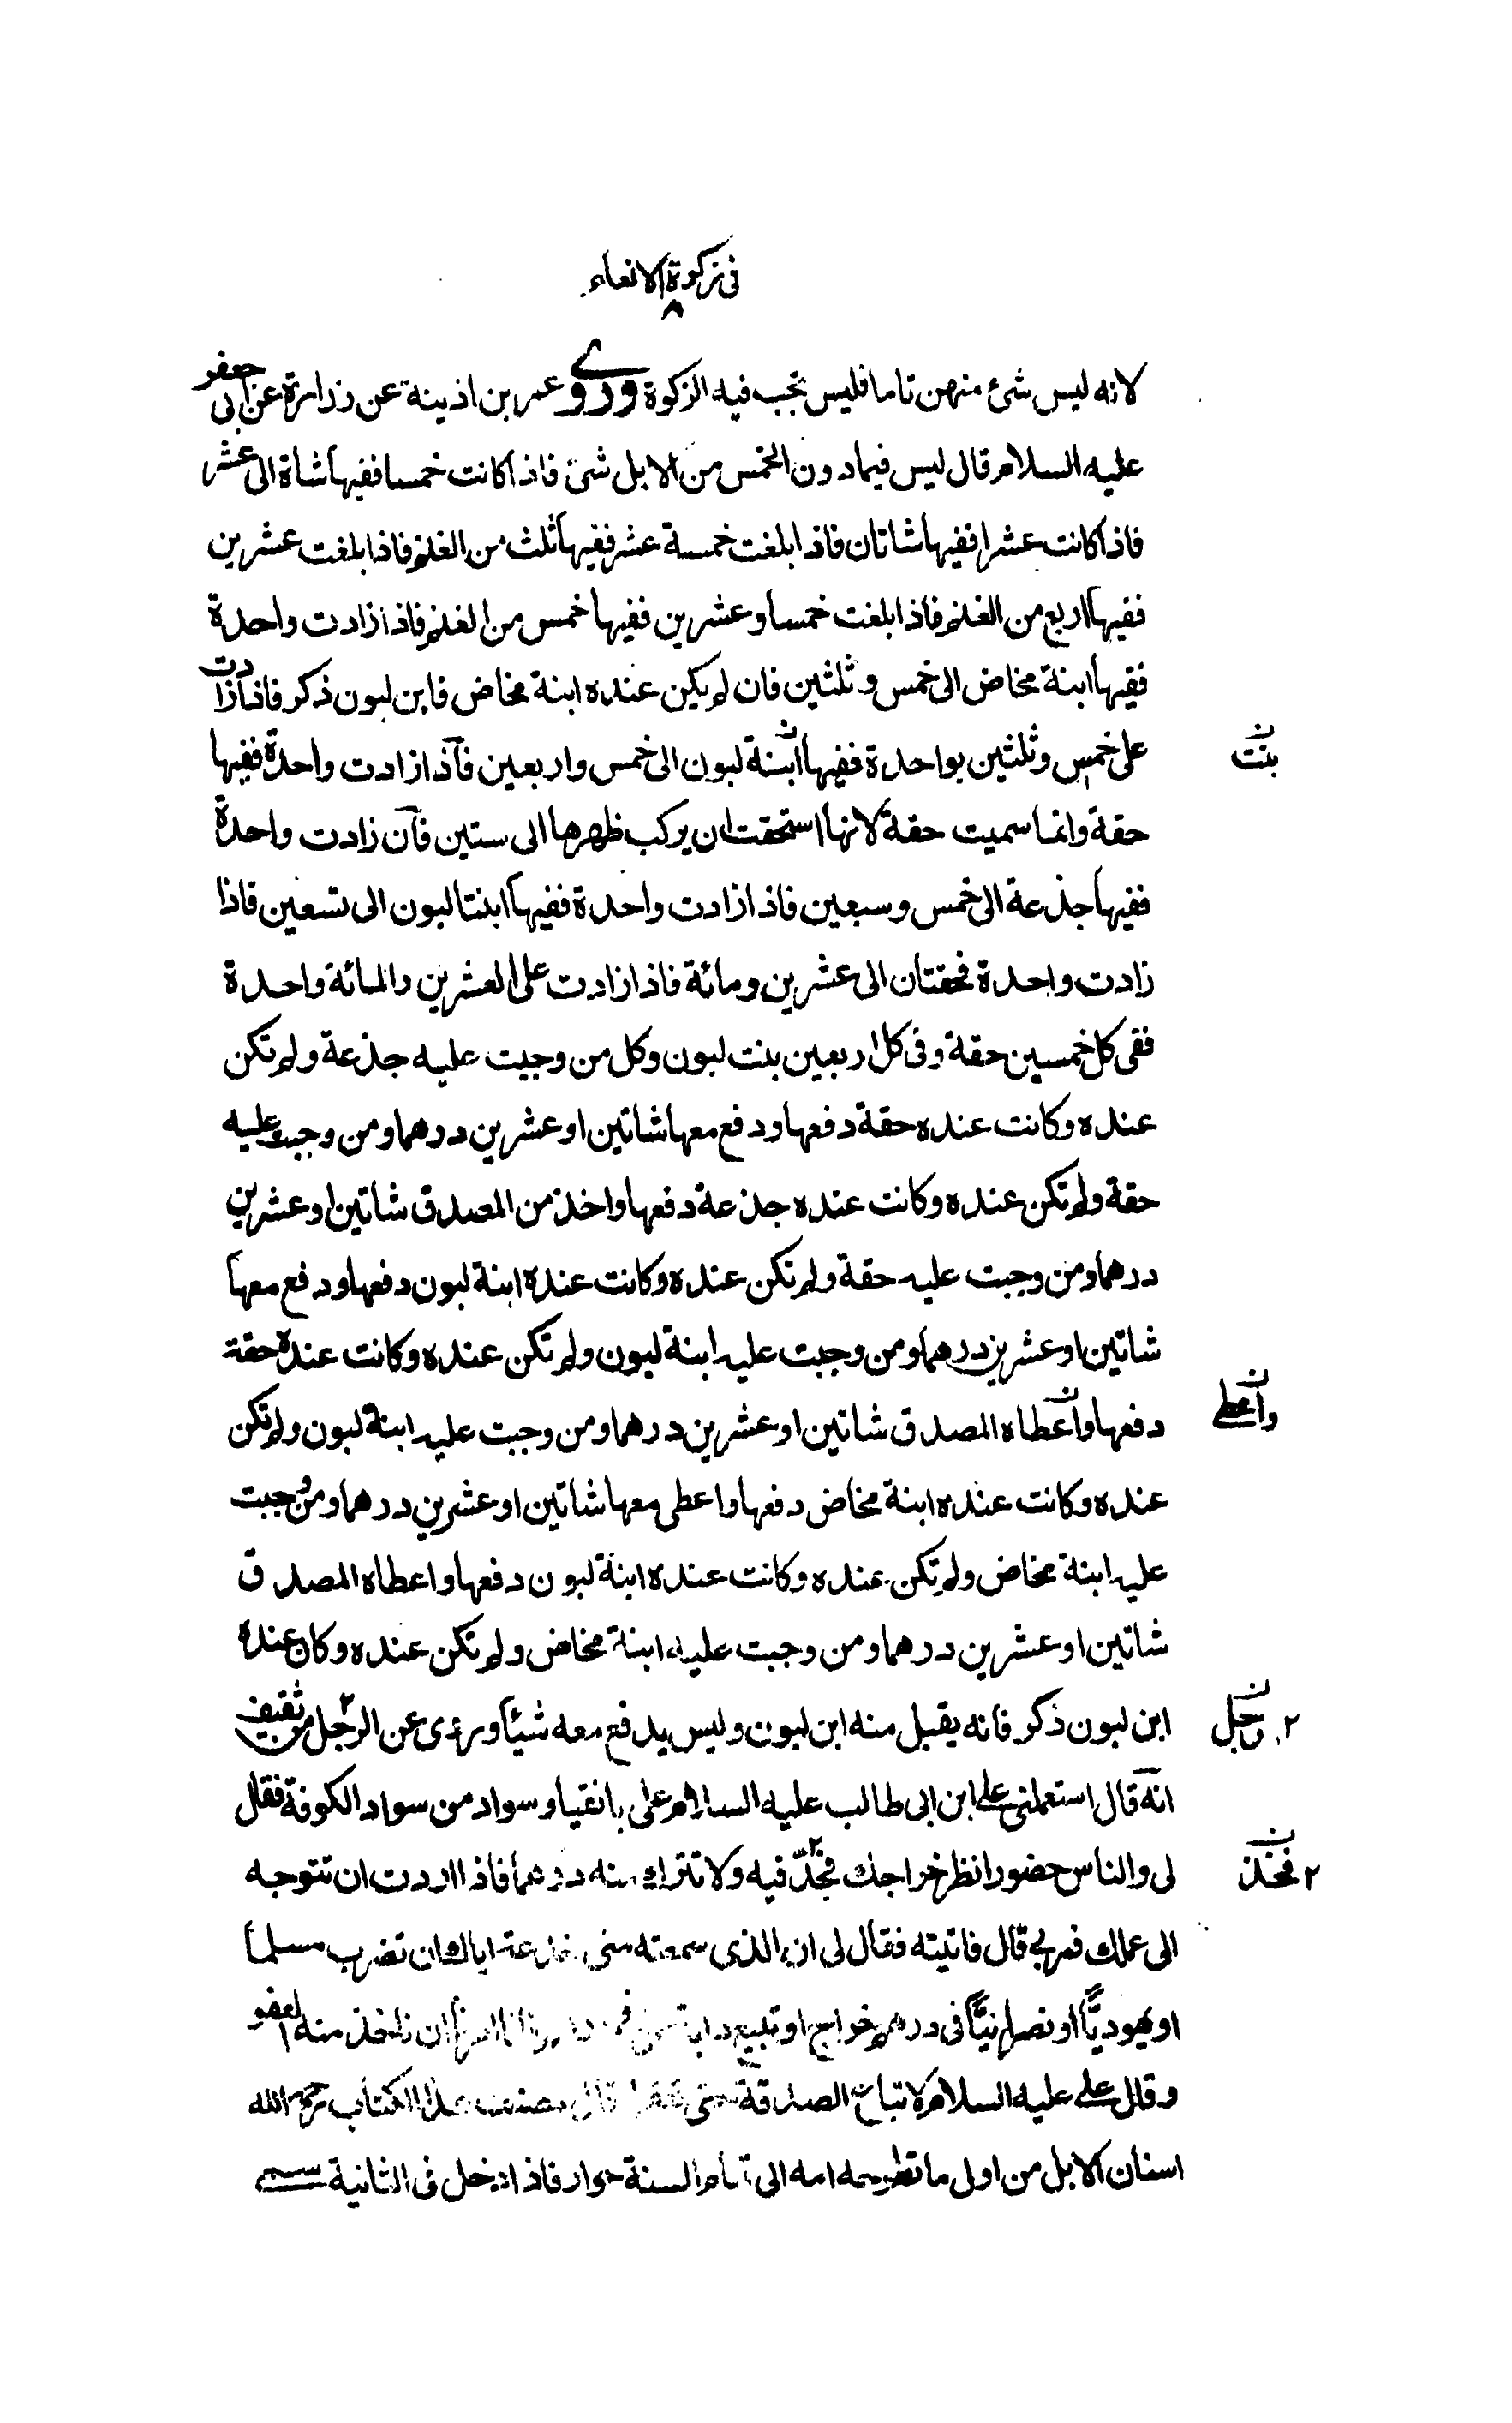 في زكوة الانعام
٨
لانه ليس شئ منهن تاما فليس تجب فيه الزكوة وروى عمر بن اذينة عن زرارة عن ابى جعفر
عليه السلام قال ليس فيما دون الخمس من الابل شئ فاذا كانت خمسا ففيها شاة الى عشر
فاذا كانت عشرا ففيها شاتان فاذا بلغت خمسة عشر ففيها ثلث من الغنم فاذا بلغت عشرين
ففيها اربع من الغنم فاذا بلغت خمسا وعشرين ففيها خمس من الغنم فاذا زادت واحدة
ففيها ابنة مخاض الى خمس وثلثين فان لم يكن عنده ابنة مخاض فابن لبون ذكر فاذا زادت
على خمس وثلثين بواحدة ففيها ابنة لبون الى خمس واربعين فاذا زادت واحدة ففيها
بنت
حقة وانما سميت حقة لانها استحقت ان يركب ظهرها الى ستين فان زادت واحدة
ففيها جذعة الى خمس وسبعين فاذا زادت واحدة ففيها ابنتا لبون الى تسعين فاذا
زادت واحدة فحقتان الى عشرين ومائة فاذا زادت على العشرين والمائة واحدة
ففى كل خمسين حقة وفى كل اربعين بنت لبون وكل من وجبت عليه جذعة ولم تكن
عنده وكانت عنده حقة دفعها ودفع معها شاتين او عشرين درهما ومن وجبت عليه
حقة ولم تكن عنده وكانت عنده جذعة دفعها واخذ من المصدق شاتين او عشرين
درهما ومن وجبت عليه حقة ولم تكن عنده وكانت عنده ابنة لبون دفعها ودفع معها
شاتين او عشرين درهما ومن وجبت عليه ابنة لبون ولم تكن عنده وكانت عنده حقة
دفعها واعطاه المصدق شاتين او عشرين درهما ومن وجبت عليه ابنة لبون ولم تكن
واعطى
عنده وكانت عنده ابنة مخاض دفعها واعطى معها شاتين او عشرين درهما ومن وجبت
عليه ابنة مخاض ولم تكن عنده وكانت عنده ابنة لبون دفعها واعطاه المصدق
شاتين او عشرين درهما ومن وجبت عليه ابنة مخاض ولم تكن عنده وكان عنده
ابن لبون ذكر فانه يقبل منه ابن لبون وليس يدفع معه شيئا وروى عن الرجل من ثقيف
٢ رجل
انه قال استعملنى على ابن ابى طالب عليه السلام على بانقيا وسواد من سواد الكوفة فقال
لى والناس حضور انظر خراجك فجدّ فيه ولا تترك منه درهما فاذا اردت ان تتوجه
٢ فخذ
الى عملك فمر بى قال فاتيته فقال لى ان الذى سمعته منى خدعة اياك ان تضرب مسلما
او يهوديًّا او نصرانيًّا فى درهم خراج او تبيع دابة ان ناخذ منه العفو
وقال على عليه السلام لا تباع الصدقة حتى تعقل قال مصنف هذا الكتاب رحمه الله
اسنان الابل من اول ما تطرحه امه الى تمام السنة حوار فاذا دخل فى الثانية سمى